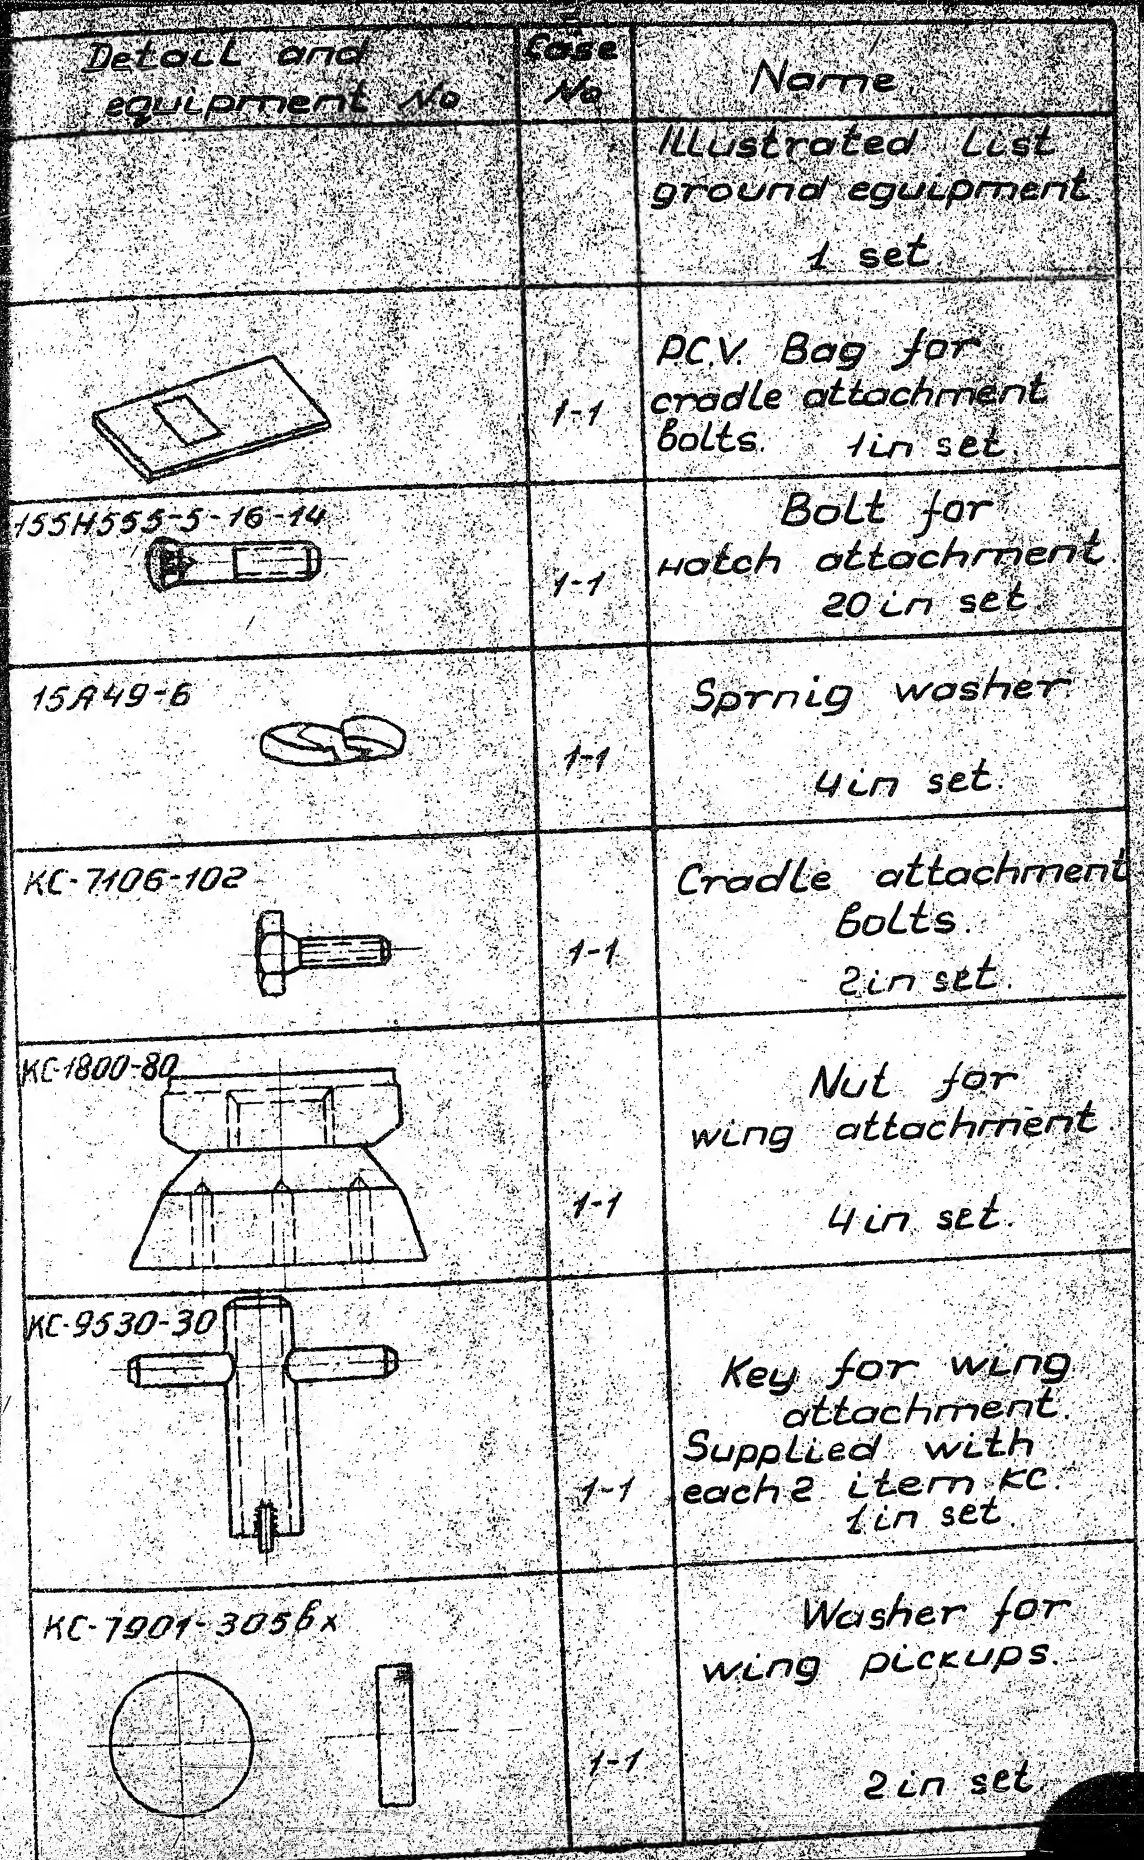 Detail and
equipment No
Case
No
Name
Illustrated List
ground eguipment
1 set.
P.C.V. Bag for
1-1
cradle attachment
bolts. 1in set.
155H555-5-16-14
Bolt for
1-1
Hatch attachment.
20 in set.
15A49-6
Sprnig washer.
1-1
4in set.
KC-7106-102
Cradle attachment
bolts.
1-1
2in set.
KC-1800-80
Nut for
wing attachment
1-1
4in set.
KC-9530-30
Key for wing
attachment.
Supplied with
1-1
each 2 item KC.
1in set.
KC-7901-305бx
Washer for
wing pickups.
1-1
2in set.